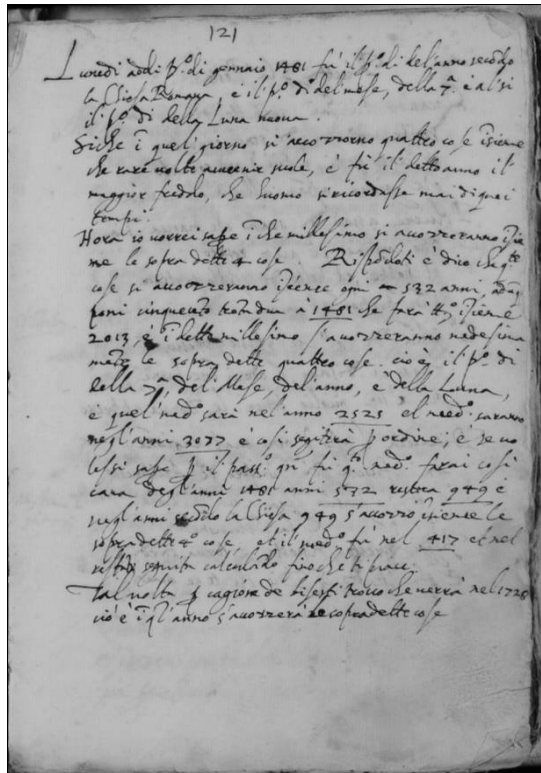 121
Lunedi adi p.º di gennaio 1481 fu il p.º di del'anno secõdo
la Chiesa Romana, e il p.º di del mese, della 7.ª e al si
il p.º di della Luna nuova.
Siche ĩ quel giorno si accozzorno quattro cose ĩsieme
che rare volte avvenir suole, è fu il detto anno il
maggior freddo, che huomo si ricordasse mai di quei
tempi.
Hora io vorrei sape ĩ che millesimo si accozzeranno ĩsie
me le sopra dette 4 cose. Rispõdoti è dico che q.te
cose si accozzeranno ĩsieme ogni 532 anni,
poni cinquecẽto trẽta dua à 1481 che farà ĩsieme
2013, è ĩ detto millesimo s'accozzeranno medesima
mẽte le sopra dette quattro cose. cio è il p.º di
della 7.ª del Mese, del'anno, è della Luna,
è quel med.º sarà nel anno 2525 el med.º saranno
negl'anni 3077 è cosi segitrà p ordine, è se vo
lessi sape p il pass.º farai cosi
cava degl'anni 1481 anni 532 restera 949 è
negl'anni secõdo la Chiesa 949 s'accozzo ĩsieme le
sopradette 4.º cose, et il med.º fù nel 417 et nel
resto seguita calculãdo fino che ti piace.
Tal volta p cagione de bisesti trovo che verrà nel 1728
cio è ĩ q.l anno s'accozzerà le sopradette cose